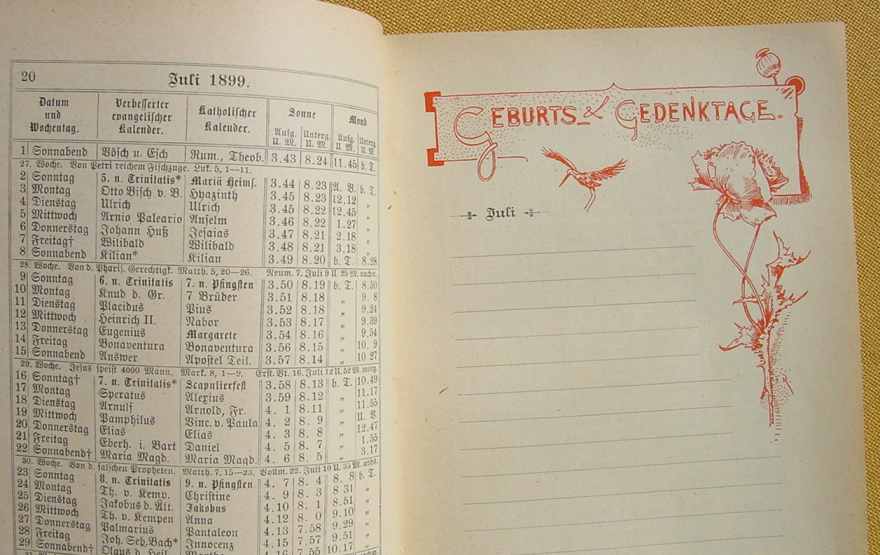 20 Juli 1899.
Datum und Wochentag. Verbesserter evangelischer Kalender. Katholischer Kalender. Sonne Mond
Aufg. U. M. Unterg. U. M. Aufg. U. M. Unterg. U. M.
1 Sonnabend Bösch u. Esch Rum., Theob. 3.43 8.24 11.45 b. T.
27. Woche. Von Petri reichem Fischzuge. Luk. 5, 1—11.
2 Sonntag 5. n. Trinitatis* Mariä Heims. 3.44 8.23 A. V. b. T.
3 Montag Otto Bisch v. B. Hyazinth 3.45 8.23 12.12 „
4 Dienstag Ulrich Ulrich 3.45 8.22 12.45 „
5 Mittwoch Arnio Paleario Anselm 3.46 8.22 1.27 „
6 Donnerstag Johann Huß Jesaias 3.47 8.21 2.18 „
7 Freitag† Wilibald Wilibald 3.48 8.21 3.18 „
8 Sonnabend Kilian* Kilian 3.49 8.20 b. T. 8.28
28. Woche. Von d. Pharis. Gerechtigk. Matth. 5, 20—26. Neum. 7. Juli 9 U.
9 Sonntag 6. n. Trinitatis 7. n. Pfingsten 3.50 8.19 b. T. 8.50
10 Montag Knud d. Gr. 7 Brüder 3.51 8.18 „ 9. 8
11 Dienstag Placidus Pius 3.52 8.18 „ 9.24
12 Mittwoch Heinrich II. Nabor 3.53 8.17 „ 9.39
13 Donnerstag Eugenius Margarete 3.54 8.16 „ 9.54
14 Freitag Bonaventura Bonaventura 3.56 8.15 „ 10. 9
15 Sonnabend Answer Apostel Teil. 3.57 8.14 „ 10 27
29. Woche. Jesus speist 4000 Mann. Mark. 8, 1—9. Erst. Vt. 16. Juli
16 Sonntag† 7. n. Trinitatis* Skapulierfest 3.58 8.13 b. T. 10.49
17 Montag Speratus Alexius 3.59 8.12 „ 11.17
18 Dienstag Arnulf Arnold, Fr. 4. 1 8.11 „ 11.55
19 Mittwoch Pamphilus Vinc. v. Paula 4. 2 8. 9 „ U. V.
20 Donnerstag Elias Elias 4. 3 8. 8 „ 12.47
21 Freitag Eberh. i. Bart Daniel 4. 5 8. 7 „ 1.55
22 Sonnabend† Maria Magd. Maria Magd. 4. 6 8. 5 „ 3.17
30. Woche. Von d. falschen Propheten. Matth. 7, 15—23. Vollm. 22. Juli 10 U.
23 Sonntag 8. n. Trinitatis 9. n. Pfingsten 4. 7 8. 4 8. 8 b. T.
24 Montag Th. v. Kemp. Christine 4. 9 8. 3 8 31 „
25 Dienstag Jakobus d. Ält. Jakobus 4.10 8. 1 8.51 „
26 Mittwoch Th. v. Kempen Anna 4.12 8. 0 9.10 „
27 Donnerstag Palmarius Pantaleon 4.13 7.58 9.29 „
28 Freitag Joh. Seb. Bach* Innocenz 4.15 7.57 9.51 „
29 Sonnabend† Olaus d. Heil. 4.16 7.55 10.17
GEBURTS- & GEDENKTAGE.
Juli